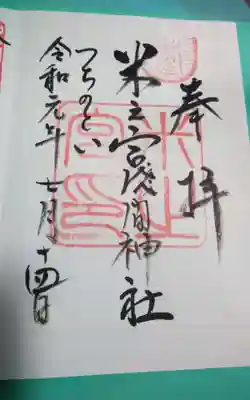 奉拝
米之宮浅間神社
つちのとい
令和元年 七月 十四日
米之
宮印